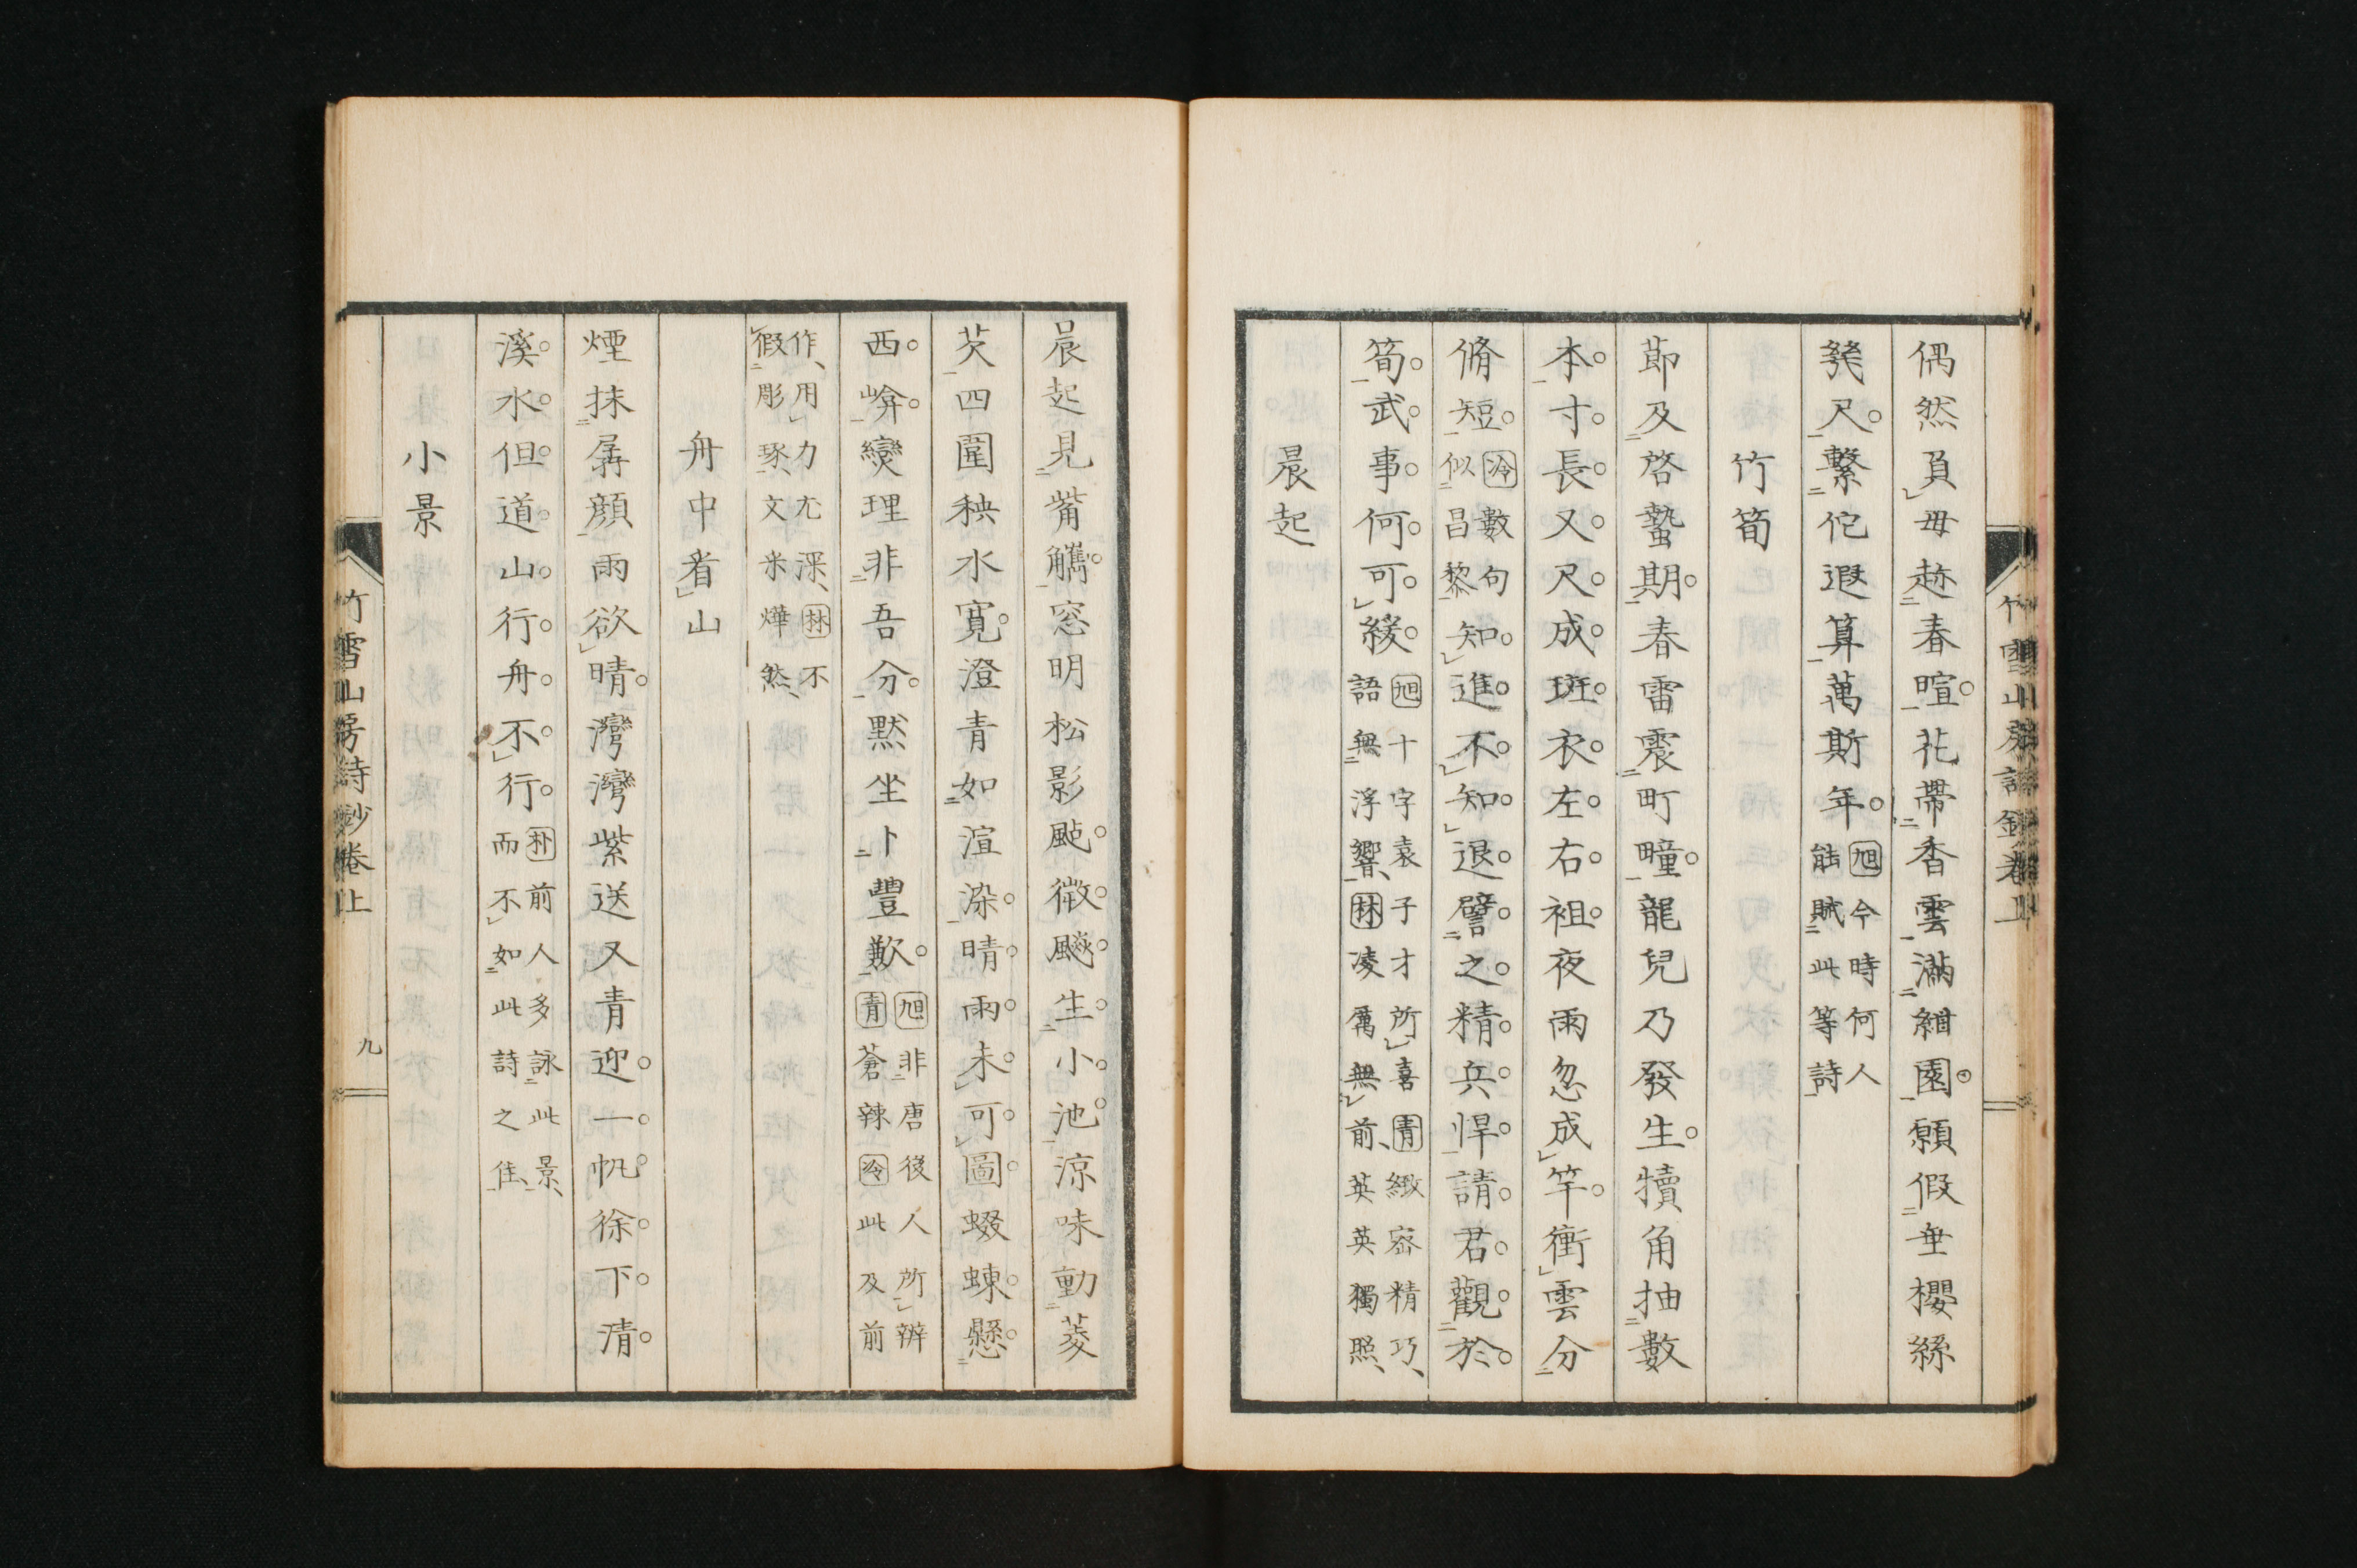 偶然負毋趂春暄。花帶香雲滿紺園。願假垂櫻絲
幾尺。繫佗遐算萬斯年。旭今時何人
能賦此等詩
竹筍
節及啓蟄期。春雷震町疃。龍兒乃發生。犢角抽數
本。寸長又尺成。斑衣左右袒。夜雨忽成竿。衝雲分
脩短。冷數句
似昌黎
知進不知退。譬之精兵悍。請君觀於
筍。武事何可緩。旭十字袁子才所喜青緻密精巧、
語無浮響、林凌厲無前、英英獨照、
晨起
竹雪山房詩鈔卷上
晨起見觜觿。窓明松影颭。微飈生小池。涼味動菱
芡。四圍秧水寬。澄青如渲染。晴雨未可圖。蝃蝀懸
西崦。燮理非吾分。默坐卜豐歉。旭非唐後人所辦
青蒼辣冷此及前
作、用力尤深、林不
假彫琢、文釆燁然、
舟中看山
煙抹孱顏雨欲晴。灣灣紫送又青迎。一帆徐下清
溪水。但道山行舟不行。朴前人多詠此景、
而不如此詩之佳、
小景
竹雪山房詩鈔卷上 九